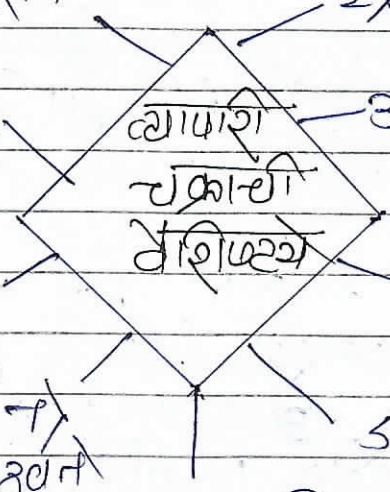 व्यापारी
चक्राची
वैशिष्ट्ये